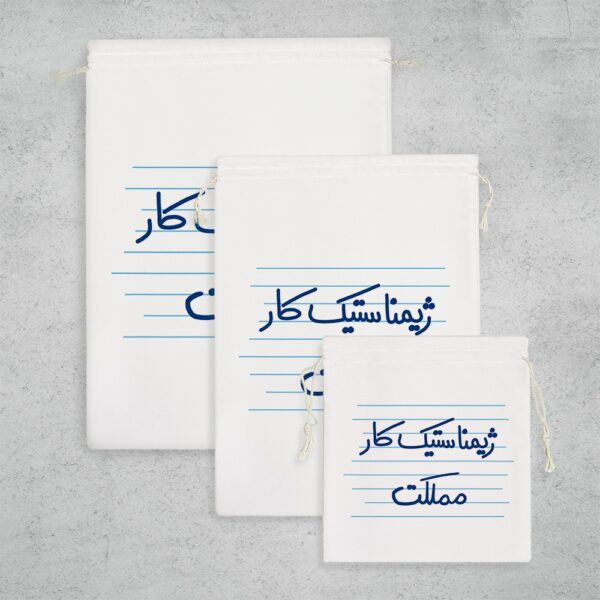 کار
ت
ژیمناستیک کار
ژیمناستیک کار
مملکت